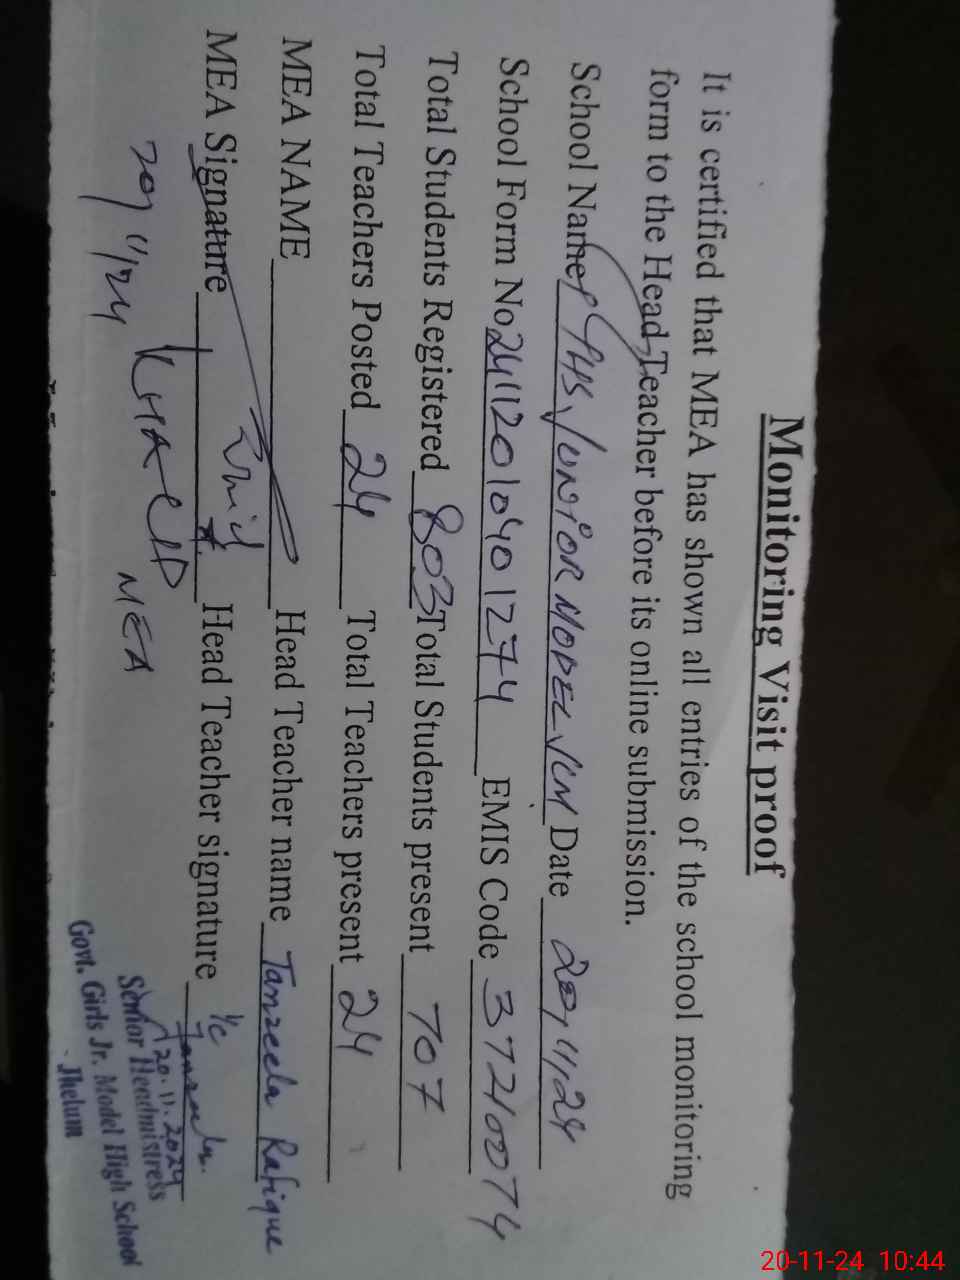 Monitoring Visit proof
It is certified that MEA has shown all entries of the school monitoring
form to the Head Teacher before its online submission.
School Name GGHS JUNIOR MODEL JLM Date 20/11/24
School Form No 24112010401274 EMIS Code 37210074
Total Students Registered 803 Total Students present 707
Total Teachers Posted 24 Total Teachers present 24
MEA NAME Head Teacher name Tanzeela Rafique
MEA Signature Head Teacher signature I/C
20/11/24 KHALID MEA
20.11.2024
Senior Headmistress
Govt. Girls Jr. Model High School
Jhelum
20-11-24 10:44